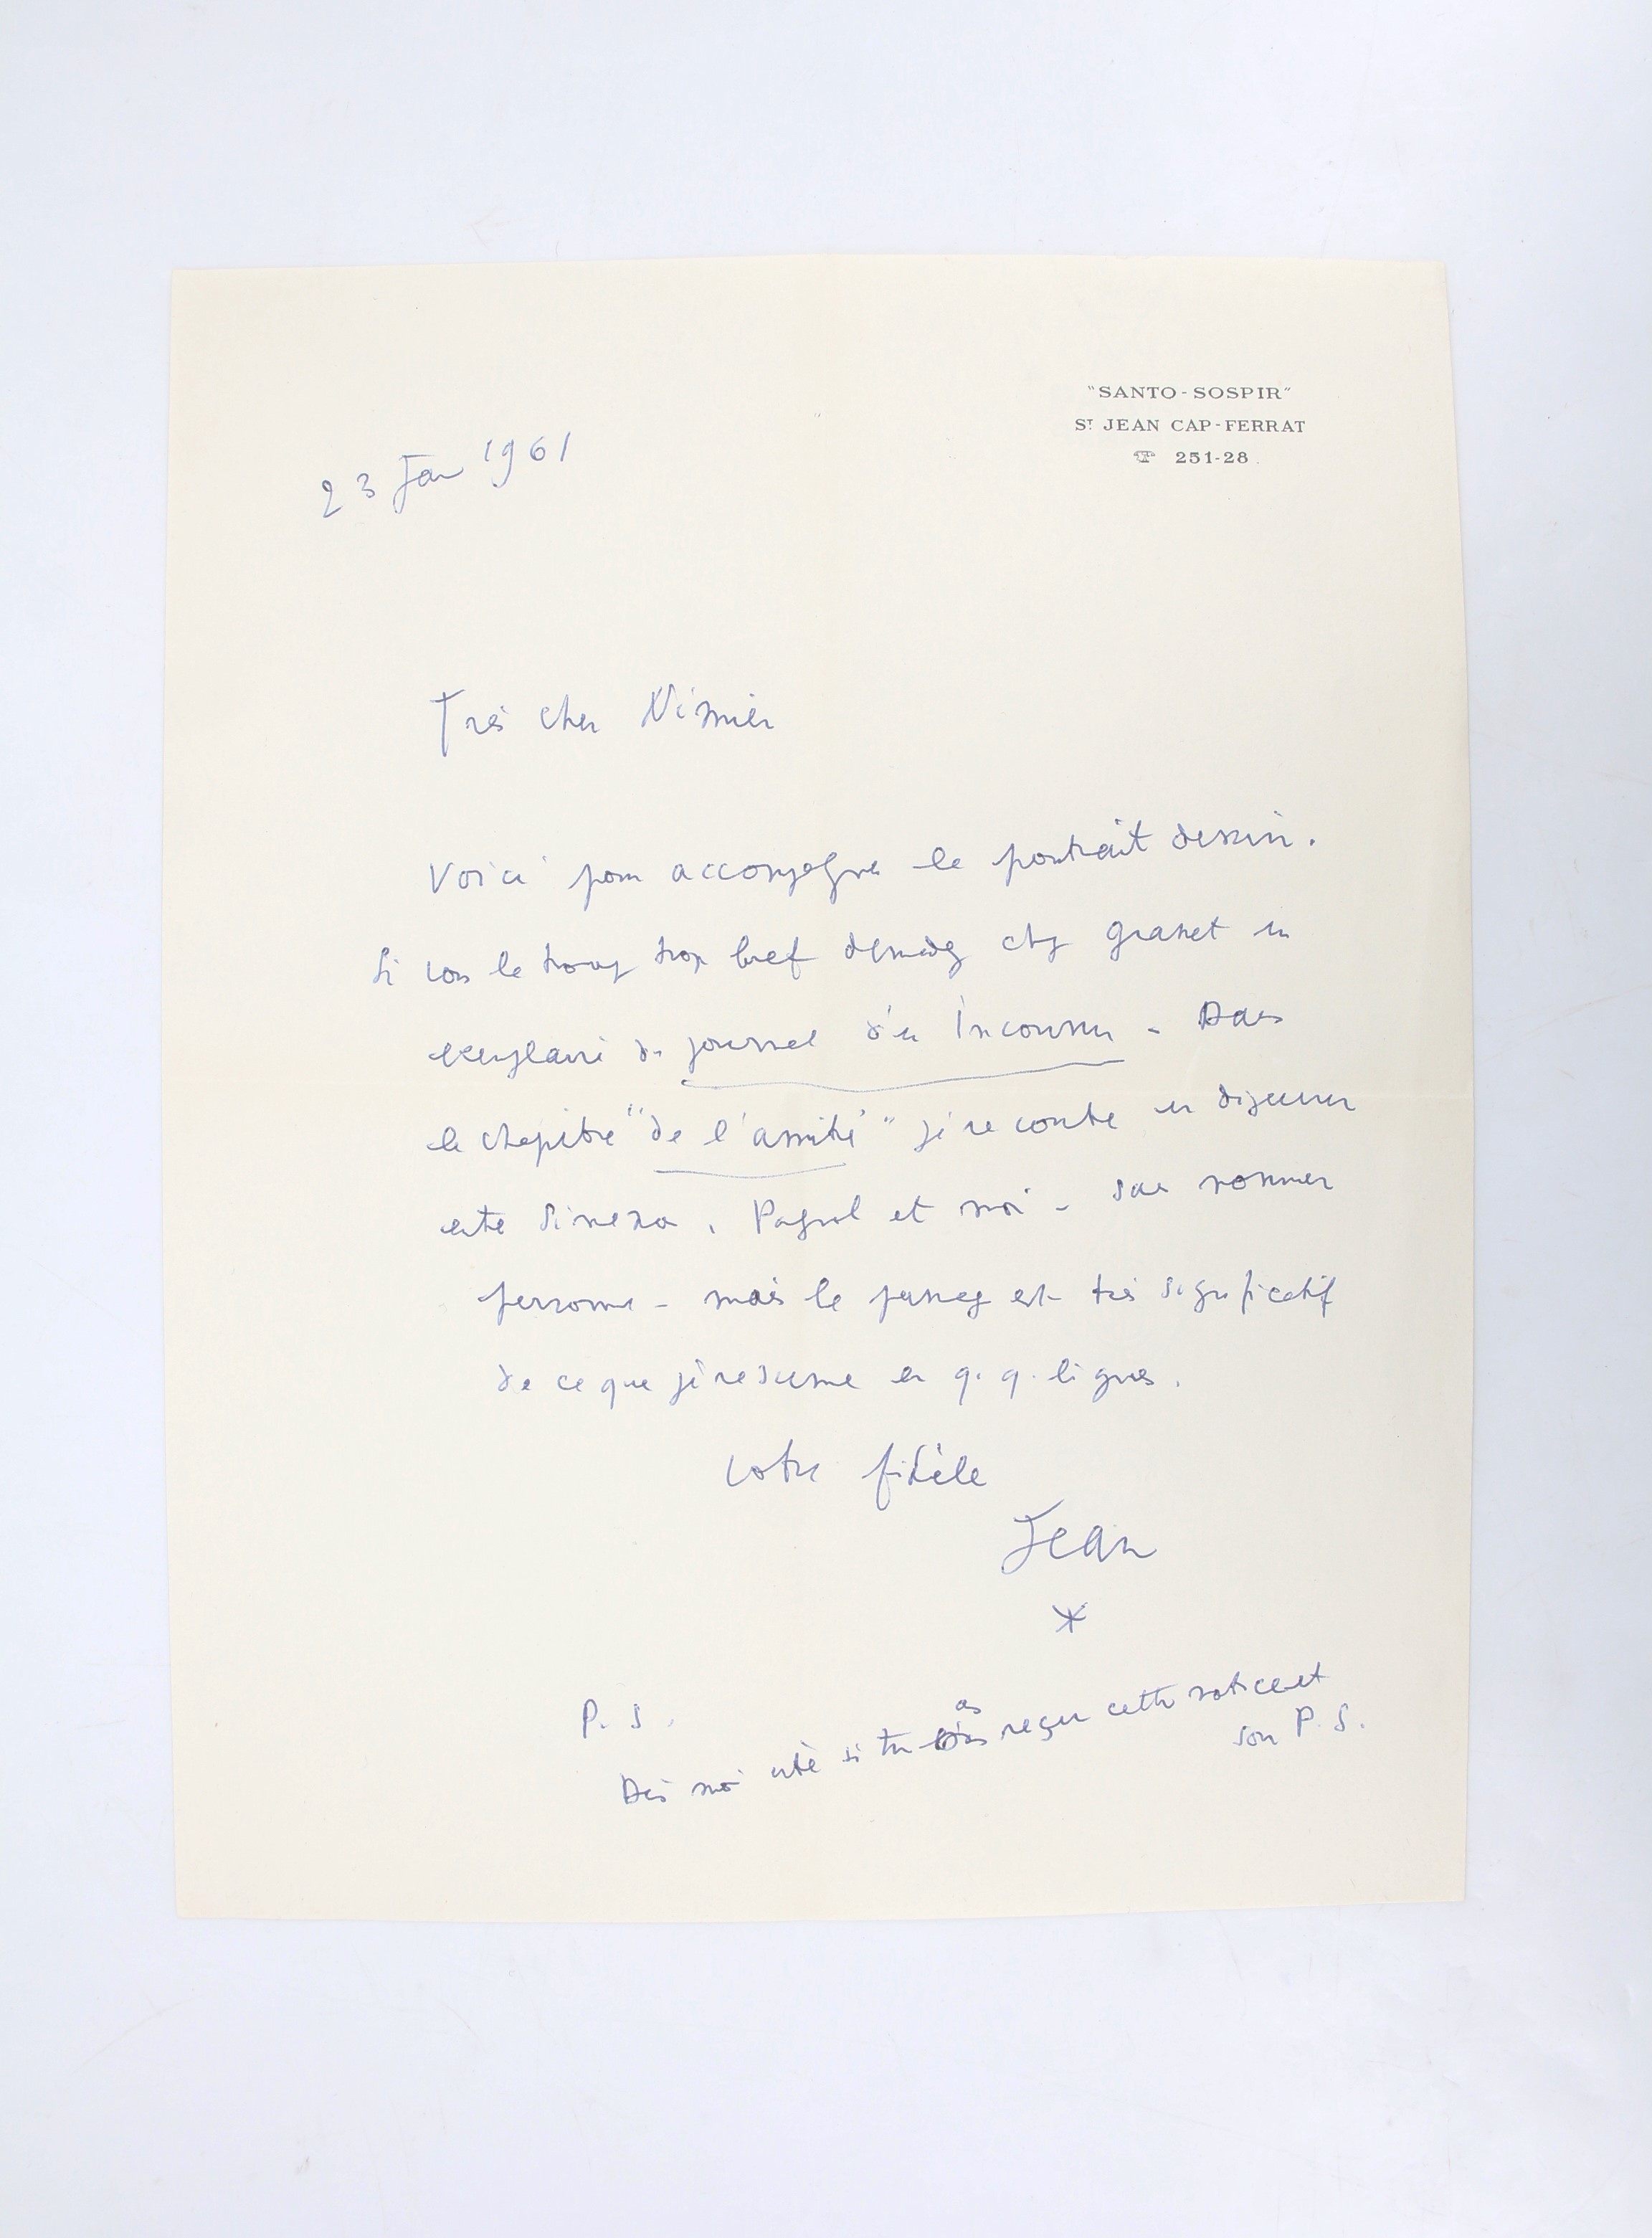 "SANTO-SOSPIR"
ST JEAN CAP-FERRAT
☎ 251-28
23 Jan 1961
Très cher Nimier
Voici pour accompagner le portrait dessin.
Si vous le trouvez trop bref demandez chez Grasset un
exemplaire du journal d'un Inconnu - Dans
le chapitre "de l'amitié" je raconte un déjeuner
entre Simenon, Pagnol et moi - sans nommer
personne - mais le passage est très significatif
de ce que je résume en q.q. lignes.
votre fidèle
Jean
*
P. S.
as
Dis moi vite si tu reçu cette notice et
son P. S.